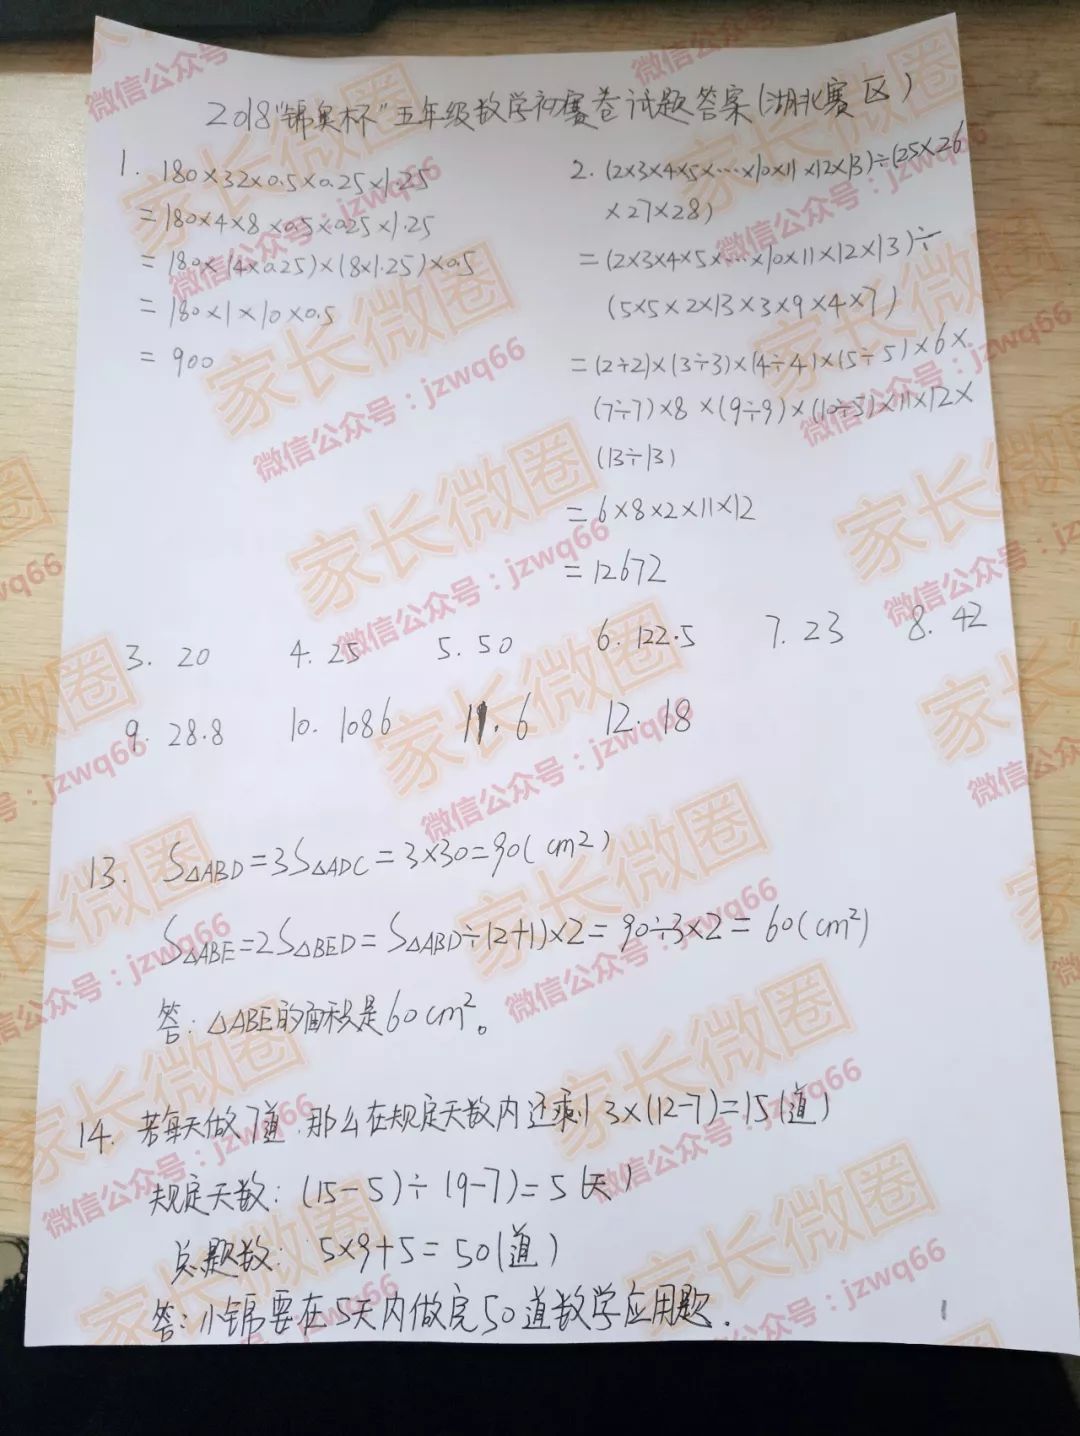 2018"锦奥杯"五年级数学初赛卷试题答案(湖北赛区)
1. 180×32×0.5×0.25×1.25
=180×4×8×0.5×0.25×1.25
=180×(4×0.25)×(8×1.25)×0.5
=180×1×10×0.5
=900
2. (2×3×4×5×…×10×11×12×13)÷(25×26
×27×28)
=(2×3×4×5×…×10×11×12×13)÷
(5×5×2×13×3×9×4×7)
=(2÷2)×(3÷3)×(4÷4)×(5÷5)×6×
(7÷7)×8×(9÷9)×(10÷5)×11×12×
(13÷13)
=6×8×2×11×12
=12672
3. 20 4. 25 5. 50 6. 122.5 7. 23 8. 42
9. 28.8 10. 1086 11. 6 12. 18
13. S△ABD=3S△ADC=3×30=90(cm²)
S△ABE=2S△BED=S△ABD÷(2+1)×2=90÷3×2=60(cm²)
答:△ABE的面积是60cm²。
14. 若每天做7道,那么在规定天数内还剩 3×(12-7)=15(道)
规定天数:(15-5)÷(9-7)=5(天)
总题数:5×9+5=50(道)
答:小锦要在5天内做完50道数学应用题.
1
家长微圈
微信公众号:jzwq66